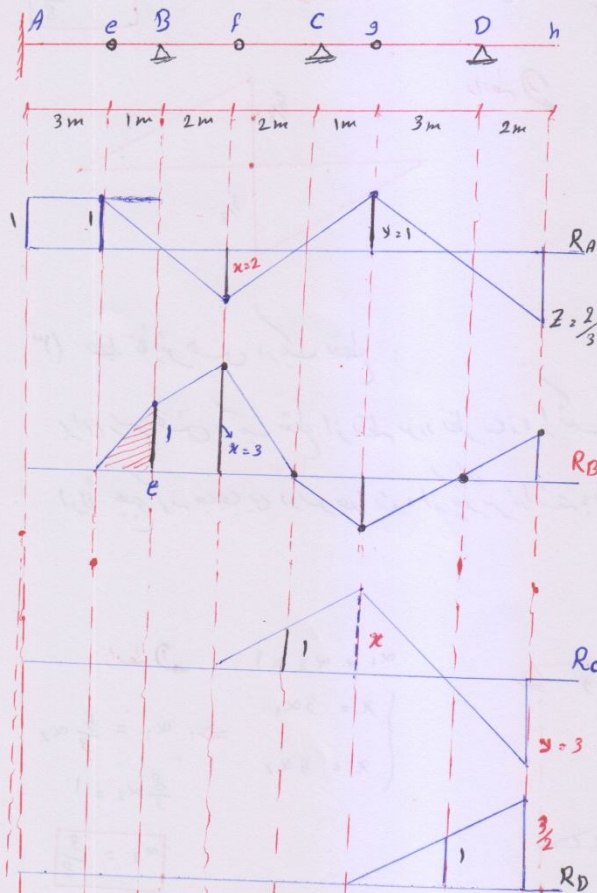 A e B f C g D h
3m 1m 2m 2m 1m 3m 2m
1 1 x=2 y=1 R_A
Z=2/3
1 x=3 R_B
e
1 x R_C
y=3
3/2
1 R_D